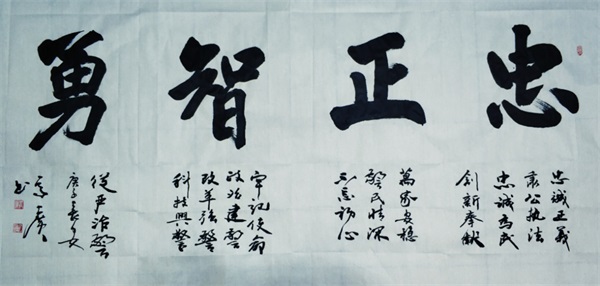 忠正智勇
忠誠正義
秉公执法
忠誠为民
创新奉献
萬家安稳
警民情深
不忘初心
牢记使命
政治建警
改革强警
科技興警
從严治警
庚子
书